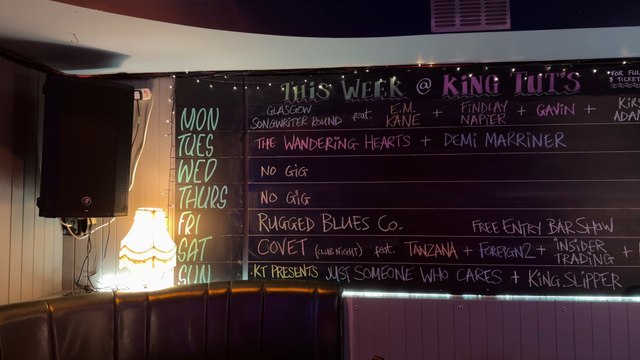 THIS WEEK @ KING TUT'S
FOR FULL
& TICKET
MON GLASGOW SONGWRITER ROUND feat. E.M. KANE + FINDLAY NAPIER + GAVIN +
TUES THE WANDERING HEARTS + DEMI MARRINER
WED NO GIG
THURS NO GIG
FRI RUGGED BLUES CO. FREE ENTRY BAR SHOW
SAT COVET (CLUB NIGHT) feat. TANZANA + FOREIGNZ + INSIDER TRADING +
SUN KT PRESENTS JUST SOMEONE WHO CARES + KING SLIPPER